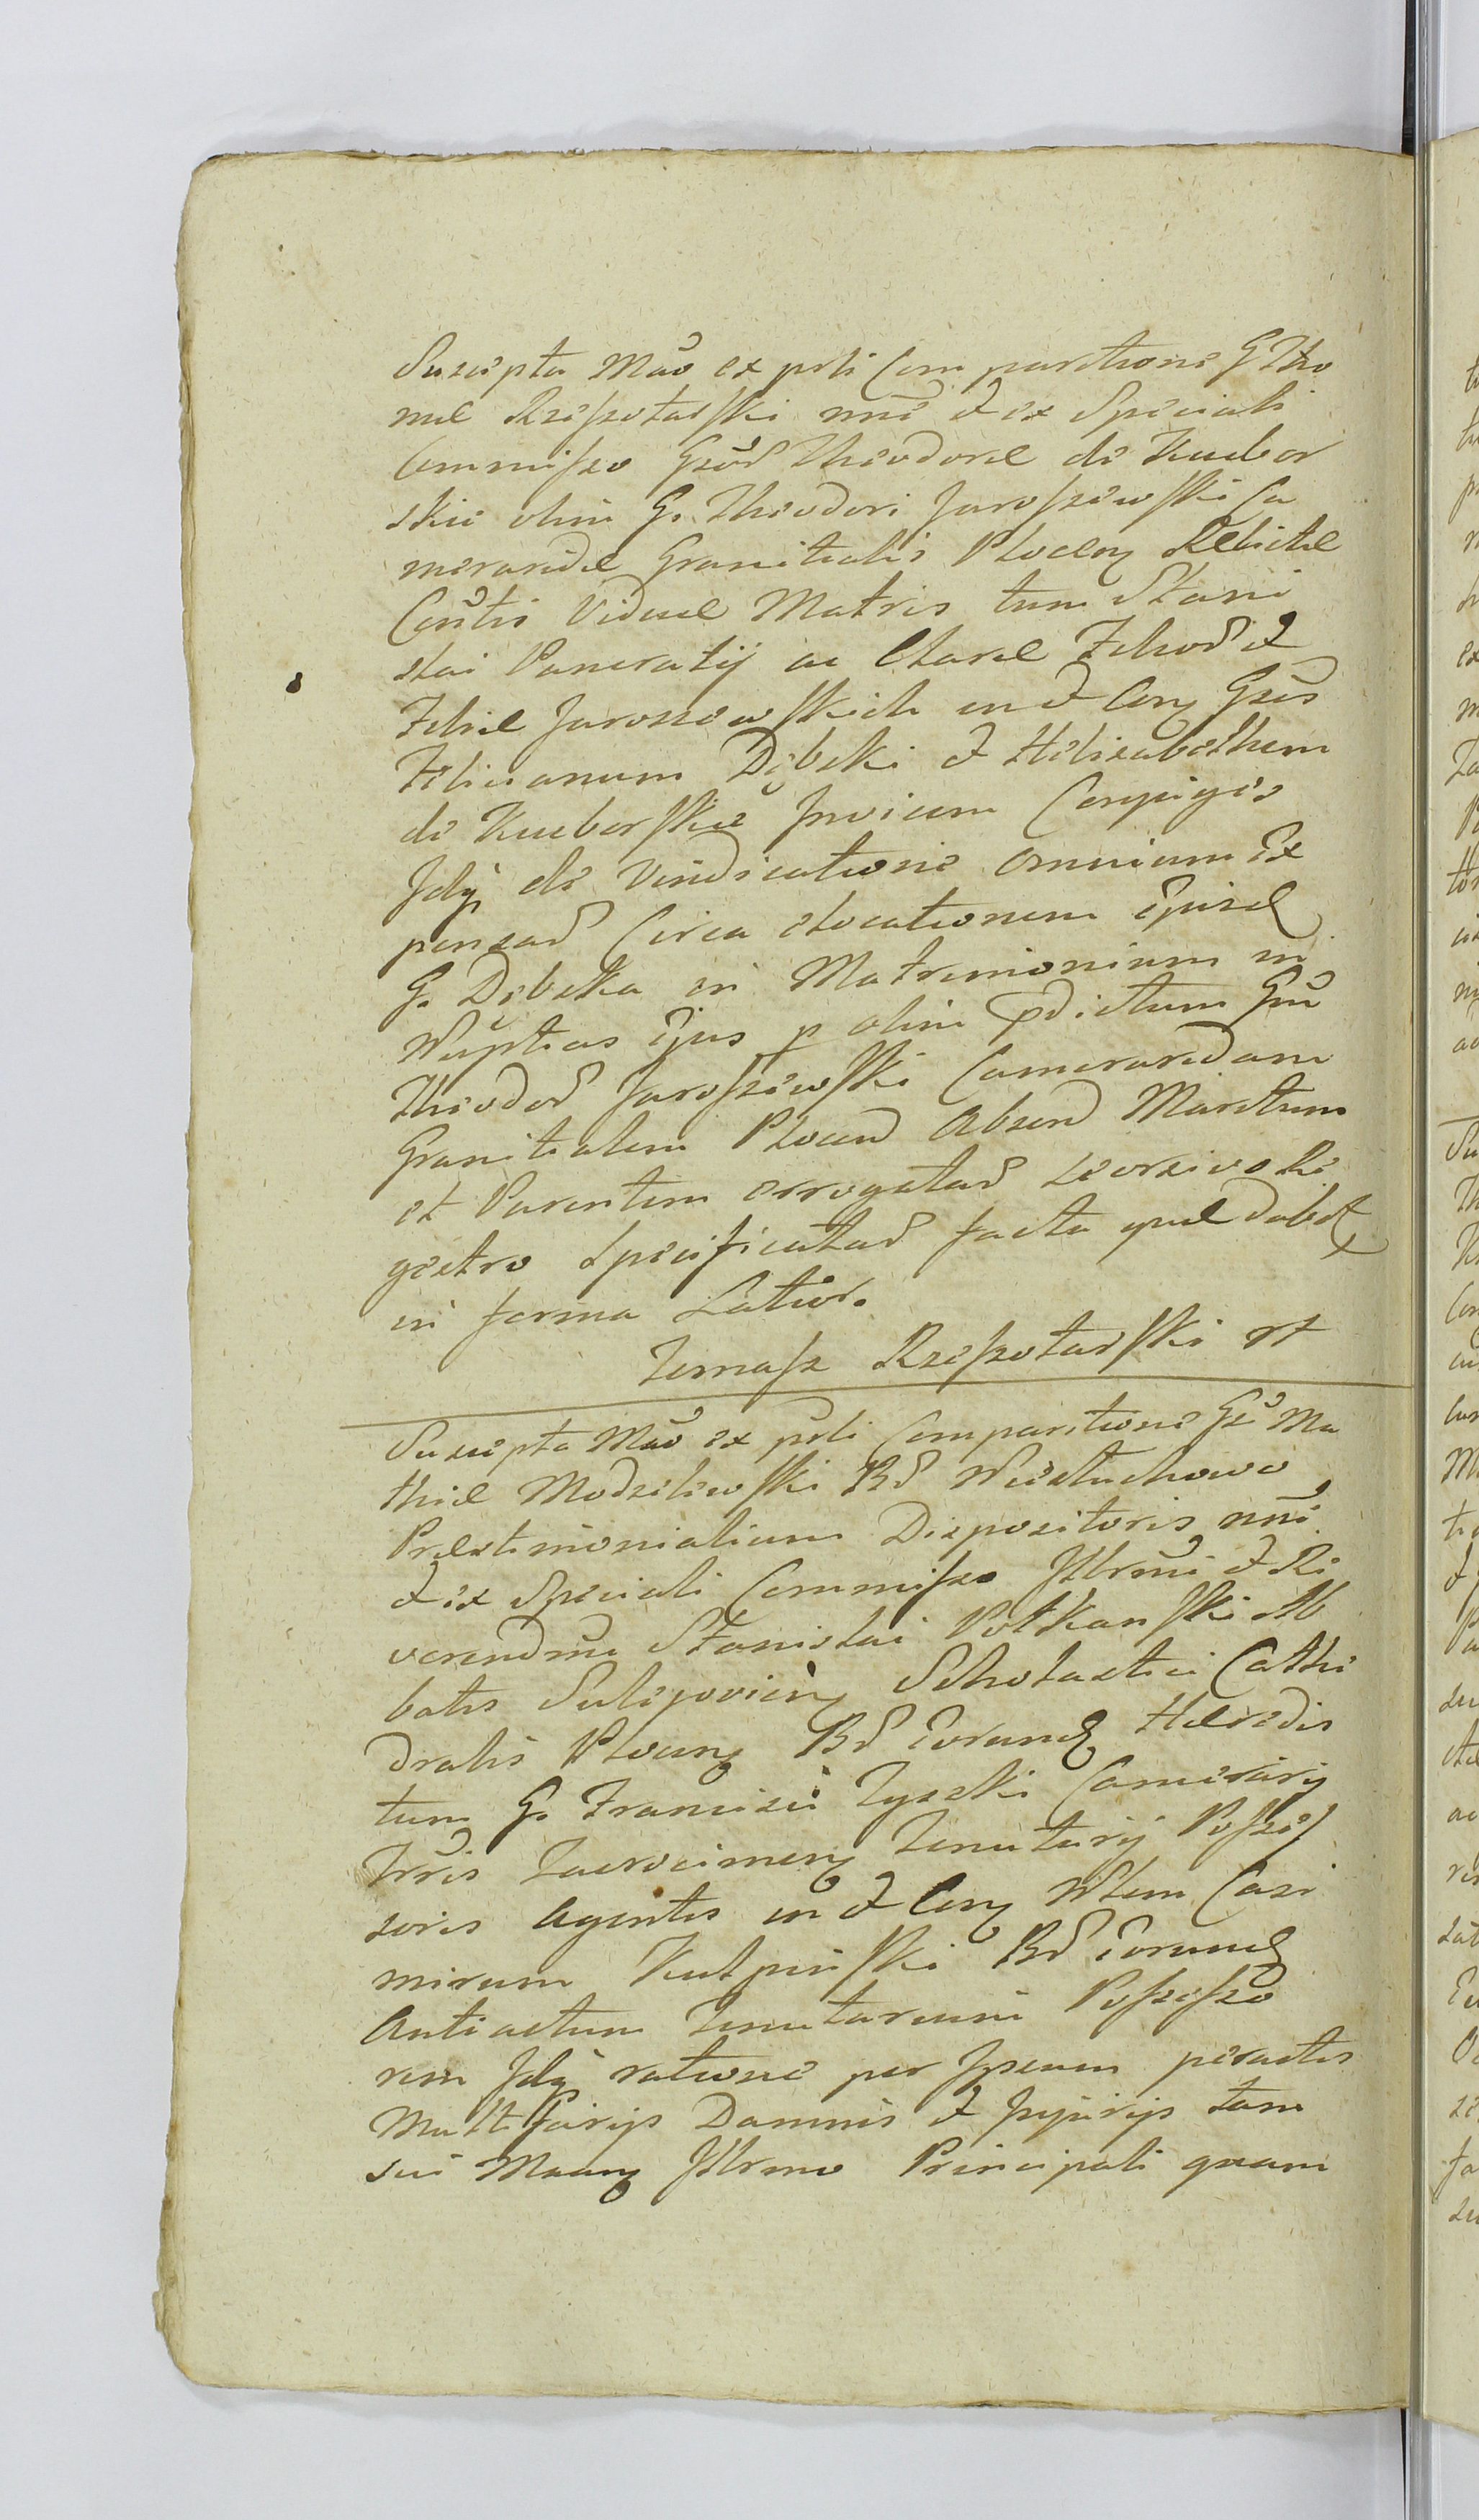 Suscepta Mãō ex prti Comparitione G Tho
mae Rzeszotarski nnẽ et ex Speciali
Commisso Gsõs Theodorae de Kuebor
skie olim G. Theodori Jaroszewski Ca
meraridae Granitialis Plocen Relictae
Cõntis Viduae Matris tum Stani
slai Pancratij ac Clarae Filior et
Filiae Jaroszewskich in et Con Gsos
Felicianum Dębski et Helisabetham
de Kueborskie Invicem Conjuges
Idq de Vindicatione omnium Ex
pensar Circa elocationem Ipsiae
G. Dębska in Matrimonium in
Nuptias Ejus p olim pdictum Gnu
Theodor Jaroszewski Cameraridam
Granitialem Plocen Absen Maritum
et Parentem errogatar seorsivo Re
gestro Specificatar facta quae dabit
in forma Latior.
Tomasz Rzeszotarski rt
Suscepta Mãō ex prti Comparitione Gsi Ma
thiae Modzelewski Br Niestuchowo
Praestimonialium Dispositoris nnẽ
et ex Speciali Commisso Illrmi et Re
verendmi Stanislai Potkanski Ab
batis Sulejovien Scholastici Cathe
dralis Plocen Br Eorund Haeredis
tum G. Francisci Zyzski Camerarij
Trris Zacrocimen Tenutarij Posses
soris Agentis in et Con Nlem Casi
mirum Kulpinski Br Eorund
Antiactum Tenutarium Possesso
rem Idq ratione per Ipsum peractis
Multifarijs Damnis et Injurijs tam
sui Maan Illrmo Principali quam